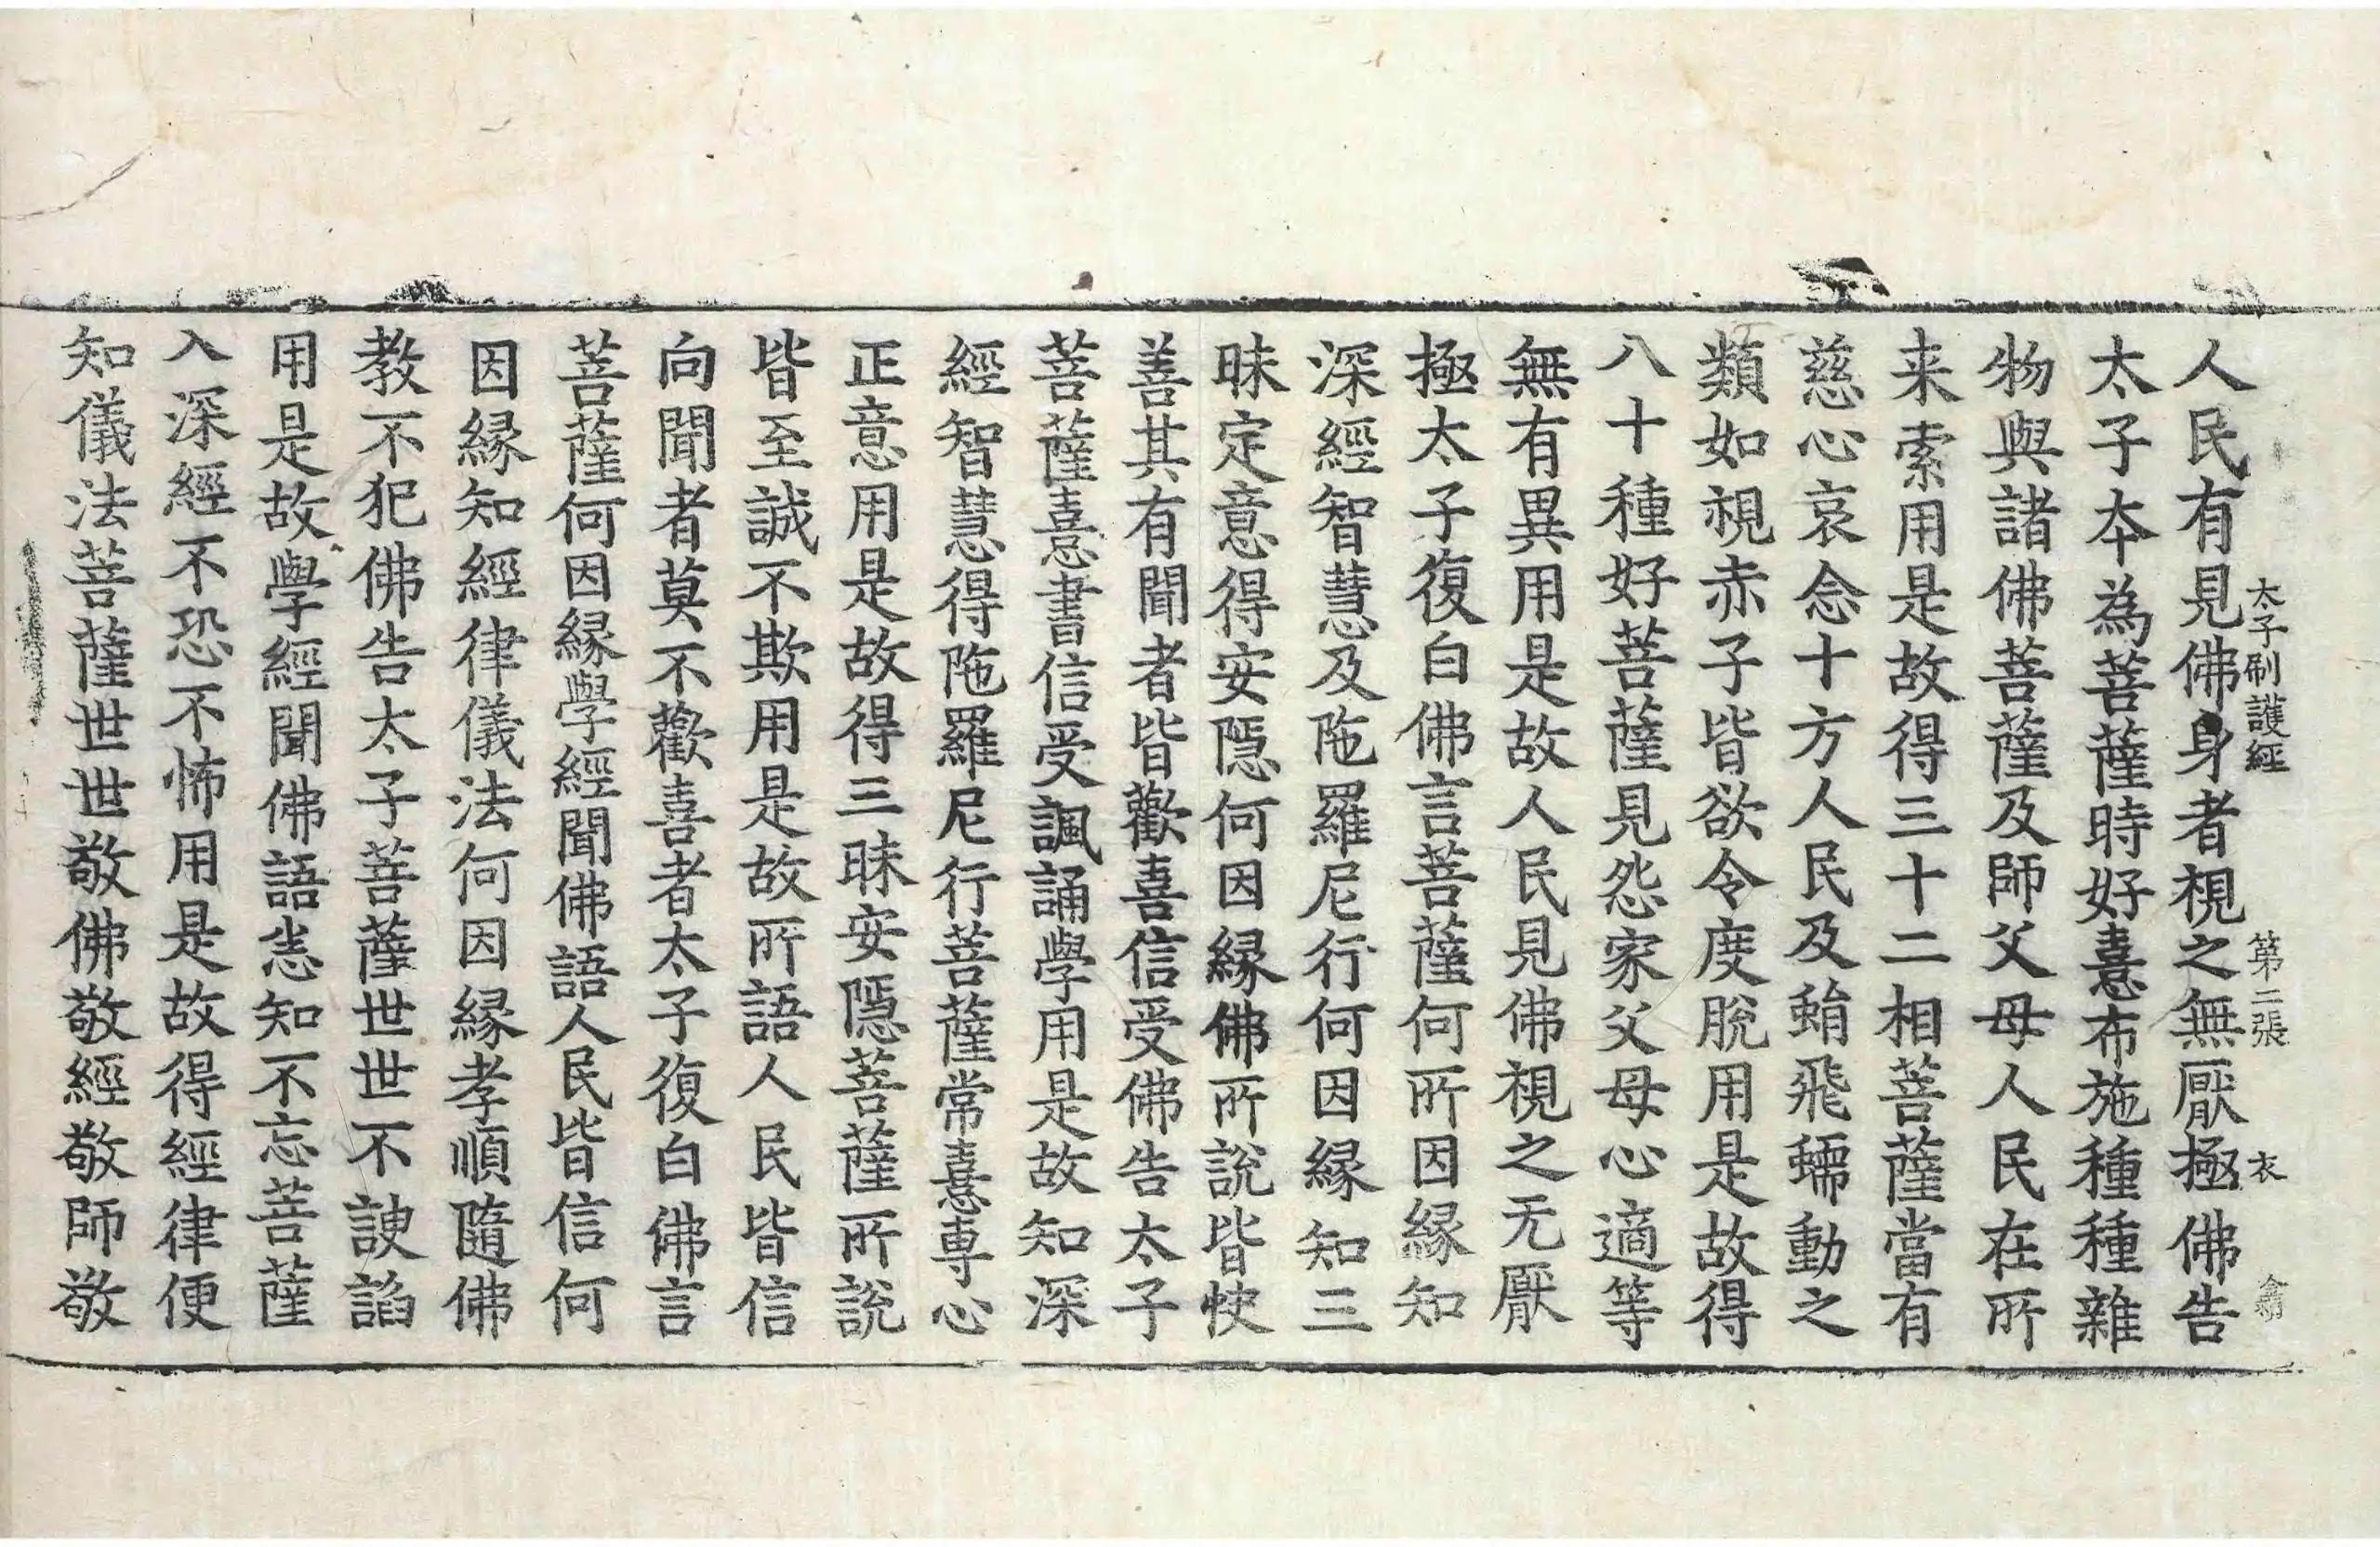 太子刷護經　第二張　衣
人民有見佛身者視之無厭極佛告
太子夲為菩薩時好憙布施種種雜
物與諸佛菩薩及師父母人民在所
来索用是故得三十二相菩薩當有
慈心哀念十方人民及蜎飛蠕動之
類如視赤子皆欲令度脫用是故得
八十種好菩薩見怨家父母心適等
無有異用是故人民見佛視之无厭
極太子復白佛言菩薩何所因縁知
深經智慧及陁羅尼行何因縁知三
昧定意得安隱何因縁佛所說皆快
善其有聞者皆歡喜信受佛告太子
菩薩憙書信受諷誦學用是故知深
經智慧得陁羅尼行菩薩常憙専心
正意用是故得三昧安隱菩薩所說
皆至誠不欺用是故所語人民皆信
向聞者莫不歡喜者太子復白佛言
菩薩何因縁學經聞佛語人民皆信何
因縁知經律儀法何因縁孝順隨佛
教不犯佛告太子菩薩世世不諛諂
用是故學經聞佛語悉知不忘菩薩
入深經不恐不怖用是故得經律便
知儀法菩薩世世敬佛敬經敬師敬